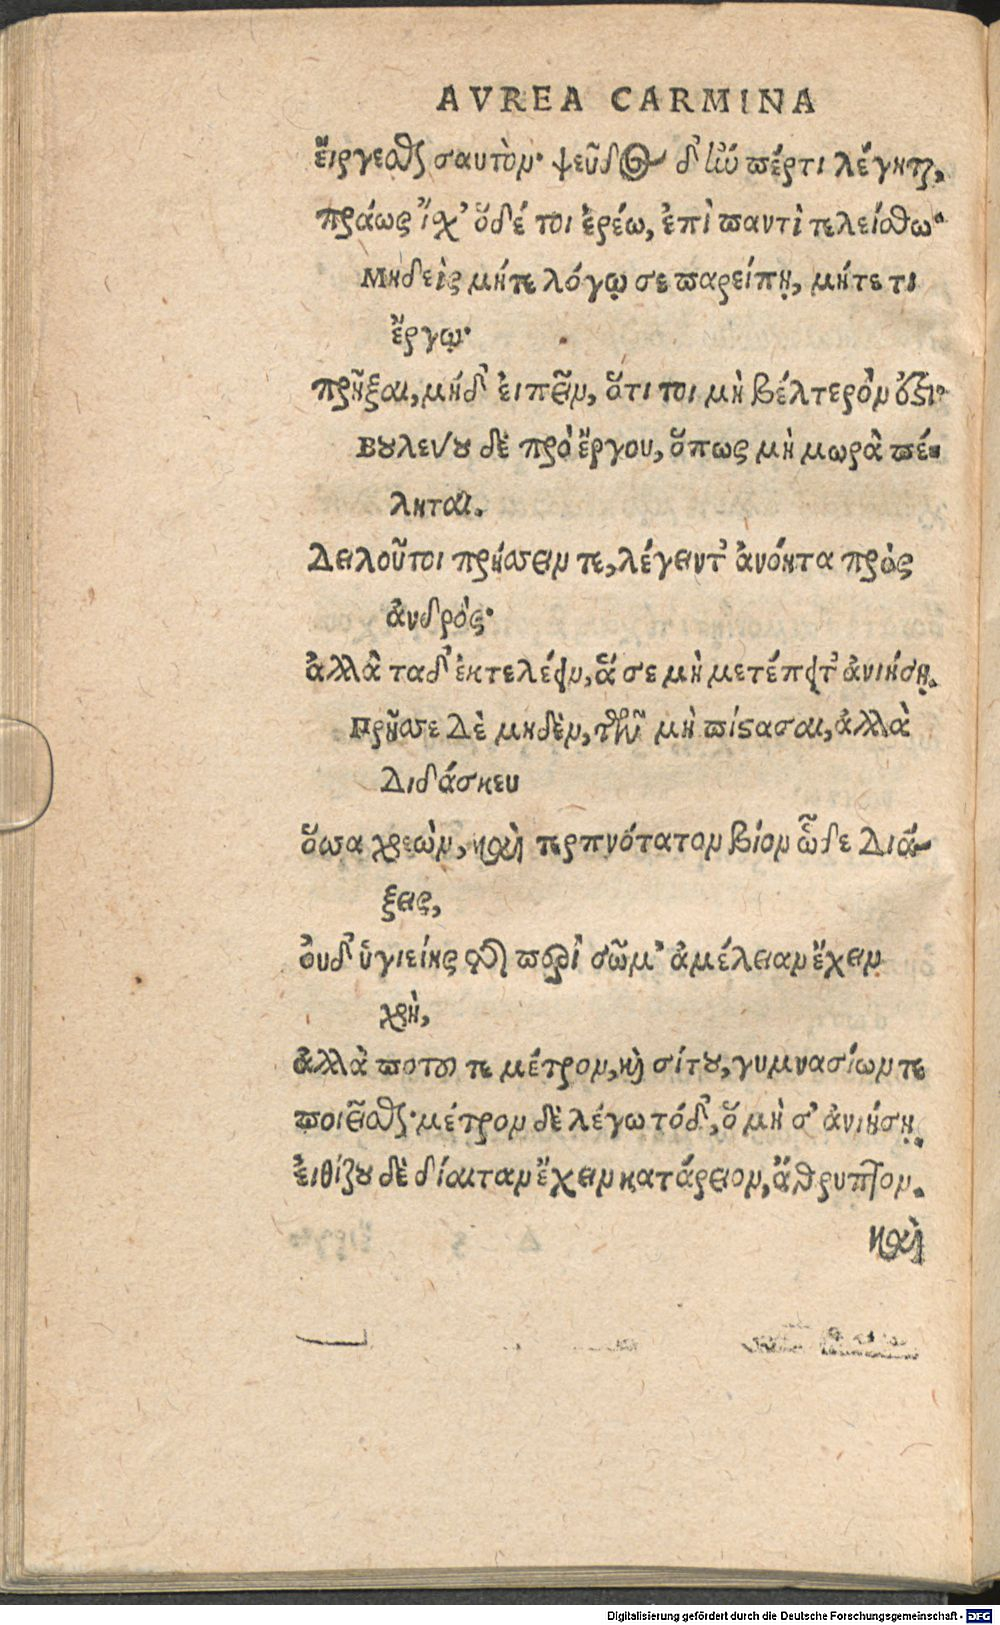 AVREA CARMINA
ἔιργεσθαι σαυτὸν· ψεῦδος δ' ἰὼ πέρτι λέγηται,
πράως ἴχ' ὅδέ τοι ἐρέω, ἐπὶ παντὶ τελείσθω·
Μηδεὶς μήτε λόγῳ σε παρείπῃ, μήτε τι
ἔργῳ·
πρῆξαι, μήδ' ἐιπεῖν, ὅτι τοι μὴ βέλτερόν ὅξι·
Βουλεύου δὲ πρὸ ἔργου, ὅπως μὴ μωρὰ πέ-
ληται.
Δειλοῦ τοι πρήσσειν τε, λέγειντ' ἀνόητα πρὸς
ἀνδρός·
ἀλλὰ ταδ' ἐκτελέειν, ἅ σε μὴ μετέπειτ' ἀνιήσῃ.
Πρῆσσε δὲ μηδὲν, τῶν μὴ πίστασαι, ἀλλὰ
διδάσκευ
ὅσσα χρεὼν, καὶ τερπνότατον βίον ὧδε διά-
ξεις,
ὀυδ' ὑγιείης τῆς περὶ σῶμ' ἀμέλειαν ἔχειν
χρὴ,
ἀλλὰ ποτοῦ τε μέτρον, καὶ σίτου, γυμνασίων τε
ποιεῖσθαι· μέτρον δὲ λέγω τόδ', ὅ μὴ σ' ἀνιήσῃ.
ἐιθίζου δὲ δίαιταν ἔχειν κατάρειον, ἄθρυπτον.
καὶ
Digitalisierung gefördert durch die Deutsche Forschungsgemeinschaft - DFG